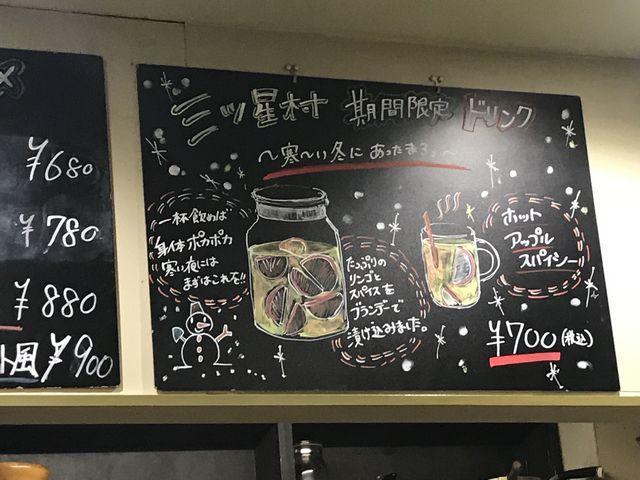 ¥680
¥780
¥880
風 ¥900
三ツ星村 期間限定 ドリンク
～寒～い冬に あったまろう～
一杯飲めば
身体ポカポカ
寒い夜には
まずはこれを!!
たっぷりの
リンゴと
スパイスを
ブランデーで
漬け込みました。
ホット
アップル
スパイシー
¥700(税込)